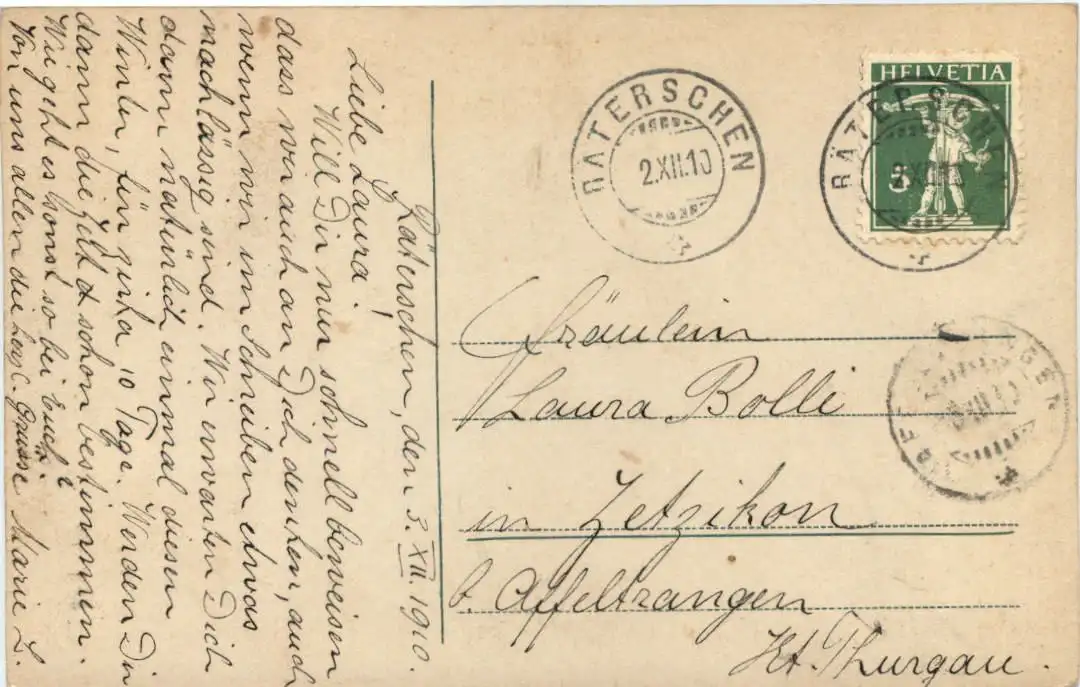 Räterschen, den 3. XII. 1910.
Liebe Laura!
Will Dir nun schnell beweisen
dass wir auch an Dich denken, auch
wenn wir im Schreiben etwas
nachlässig sind. Wir erwarten Dich
dann natürlich einmal diesen
Winter, für zirka 10 Tage. Werden Dir
dann die Zeit schon bestimmen.
Wie geht es sonst so bei Euch?
Von uns allen die herzl. Grüsse Marie L.
RÄTERSCHEN
2.XII.10
HELVETIA
5
RÄTERSCHEN
2.XII.10
Fräulein
Laura Bolli
in Zetzikon
b. Affeltrangen
Kt. Thurgau.
XII.10